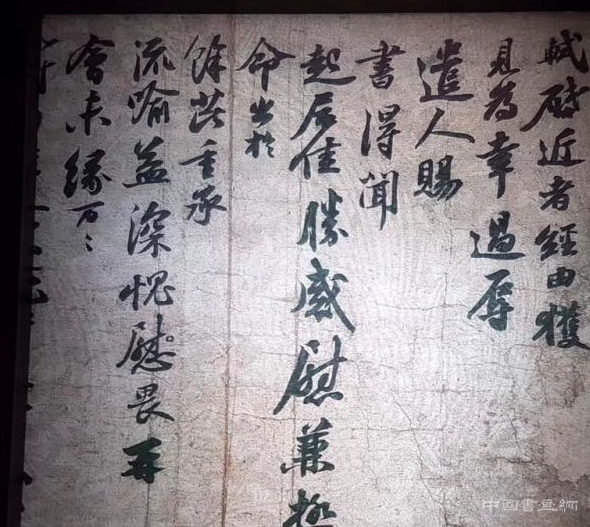 軾啟近者經由獲
見為幸過辱
遣人賜
書得聞
起居佳勝感慰兼極
命出於
餘芘重承
流喻益深愧慰畏再
會未緣万〻
中国書画網